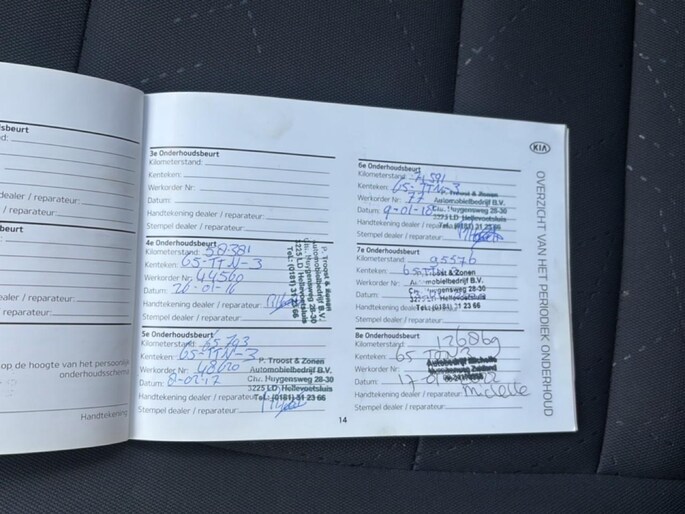 sbeurt
d:
ealer / reparateur:
/ reparateur:
beurt
ealer / reparateur:
/ reparateur:
op de hoogte van het persoonlijke
onderhoudsschema
Handtekening
3e Onderhoudsbeurt
Kilometerstand:
Kenteken:
Werkorder Nr:
Datum:
Handtekening dealer / reparateur:
Stempel dealer / reparateur:
4e Onderhoudsbeurt
Kilometerstand: 50381
Kenteken: 65-TTN-3
Werkorder Nr: 44560
Datum: 26-01-16
Handtekening dealer / reparateur:
Stempel dealer / reparateur:
P. Troost & Zonen
Automobielbedrijf B.V.
Chr. Huygensweg 28-30
3225 LD Hellevoetsluis
Tel.: (0181) 31 23 66
5e Onderhoudsbeurt
Kilometerstand: 65793
Kenteken: 65-TTN-3
Werkorder Nr: 48620
Datum: 8-02-17
Handtekening dealer / reparateur:
Stempel dealer / reparateur:
P. Troost & Zonen
Automobielbedrijf B.V.
Chr. Huygensweg 28-30
3225 LD Hellevoetsluis
Tel.: (0181) 31 23 66
14
KIA
OVERZICHT VAN HET PERIODIEK ONDERHOUD
6e Onderhoudsbeurt
Kilometerstand:
Kenteken: 65-TTN-3
Werkorder Nr:
Datum: 9-01-18
Handtekening dealer / reparateur:
Stempel dealer / reparateur:
Troost & Zonen
Automobielbedrijf B.V.
Chr. Huygensweg 28-30
3225 LD Hellevoetsluis
Tel.: (0181) 31 23 66
7e Onderhoudsbeurt
Kilometerstand: 95576
Kenteken:
Werkorder Nr:
Datum:
Handtekening dealer / reparateur:
Stempel dealer / reparateur:
Troost & Zonen
Automobielbedrijf B.V.
Huygensweg 28-30
3225 LD Hellevoetsluis
Tel.: (0181) 31 23 66
8e Onderhoudsbeurt
Kilometerstand:
Kenteken: 65
Werkorder Nr:
Datum:
Handtekening dealer / reparateur: Michelle
Stempel dealer / reparateur: